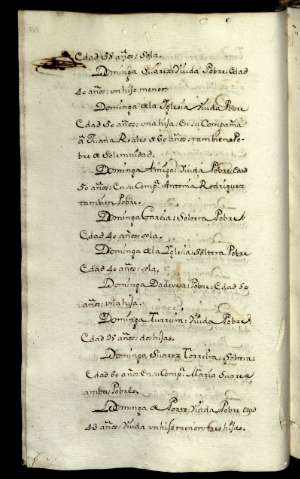 Edad 58 años: sola.
Dominga Suarez Viuda Pobre: Edad
40 años: un hijo menor.
Dominga de la Iglesia Viuda Pobre
Edad 50 años: una hija. En su Compañia
a Juana de 60 años: tambien Po-
bre de Solemnidad.
Dominga Viuda Pobre Edad
50 años: En su Comp.ª Antonia Rodriguez
tambien Pobre.
Dominga Garcia: Soltera Pobre
Edad 40 años: sola.
Dominga de la Iglesia Soltera Pobre
Edad 40 años: sola.
Dominga Pobre: Edad 50
años: una hija.
Dominga Viuda Pobre
Edad años: dos hijas.
Dominga Suarez Soltera:
Edad 60 años En su Comp.ª Maria Suarez
ambas Pobres.
Dominga de Viuda Pobre Edad
43 años: Viuda un hijo menor: tres hijas.